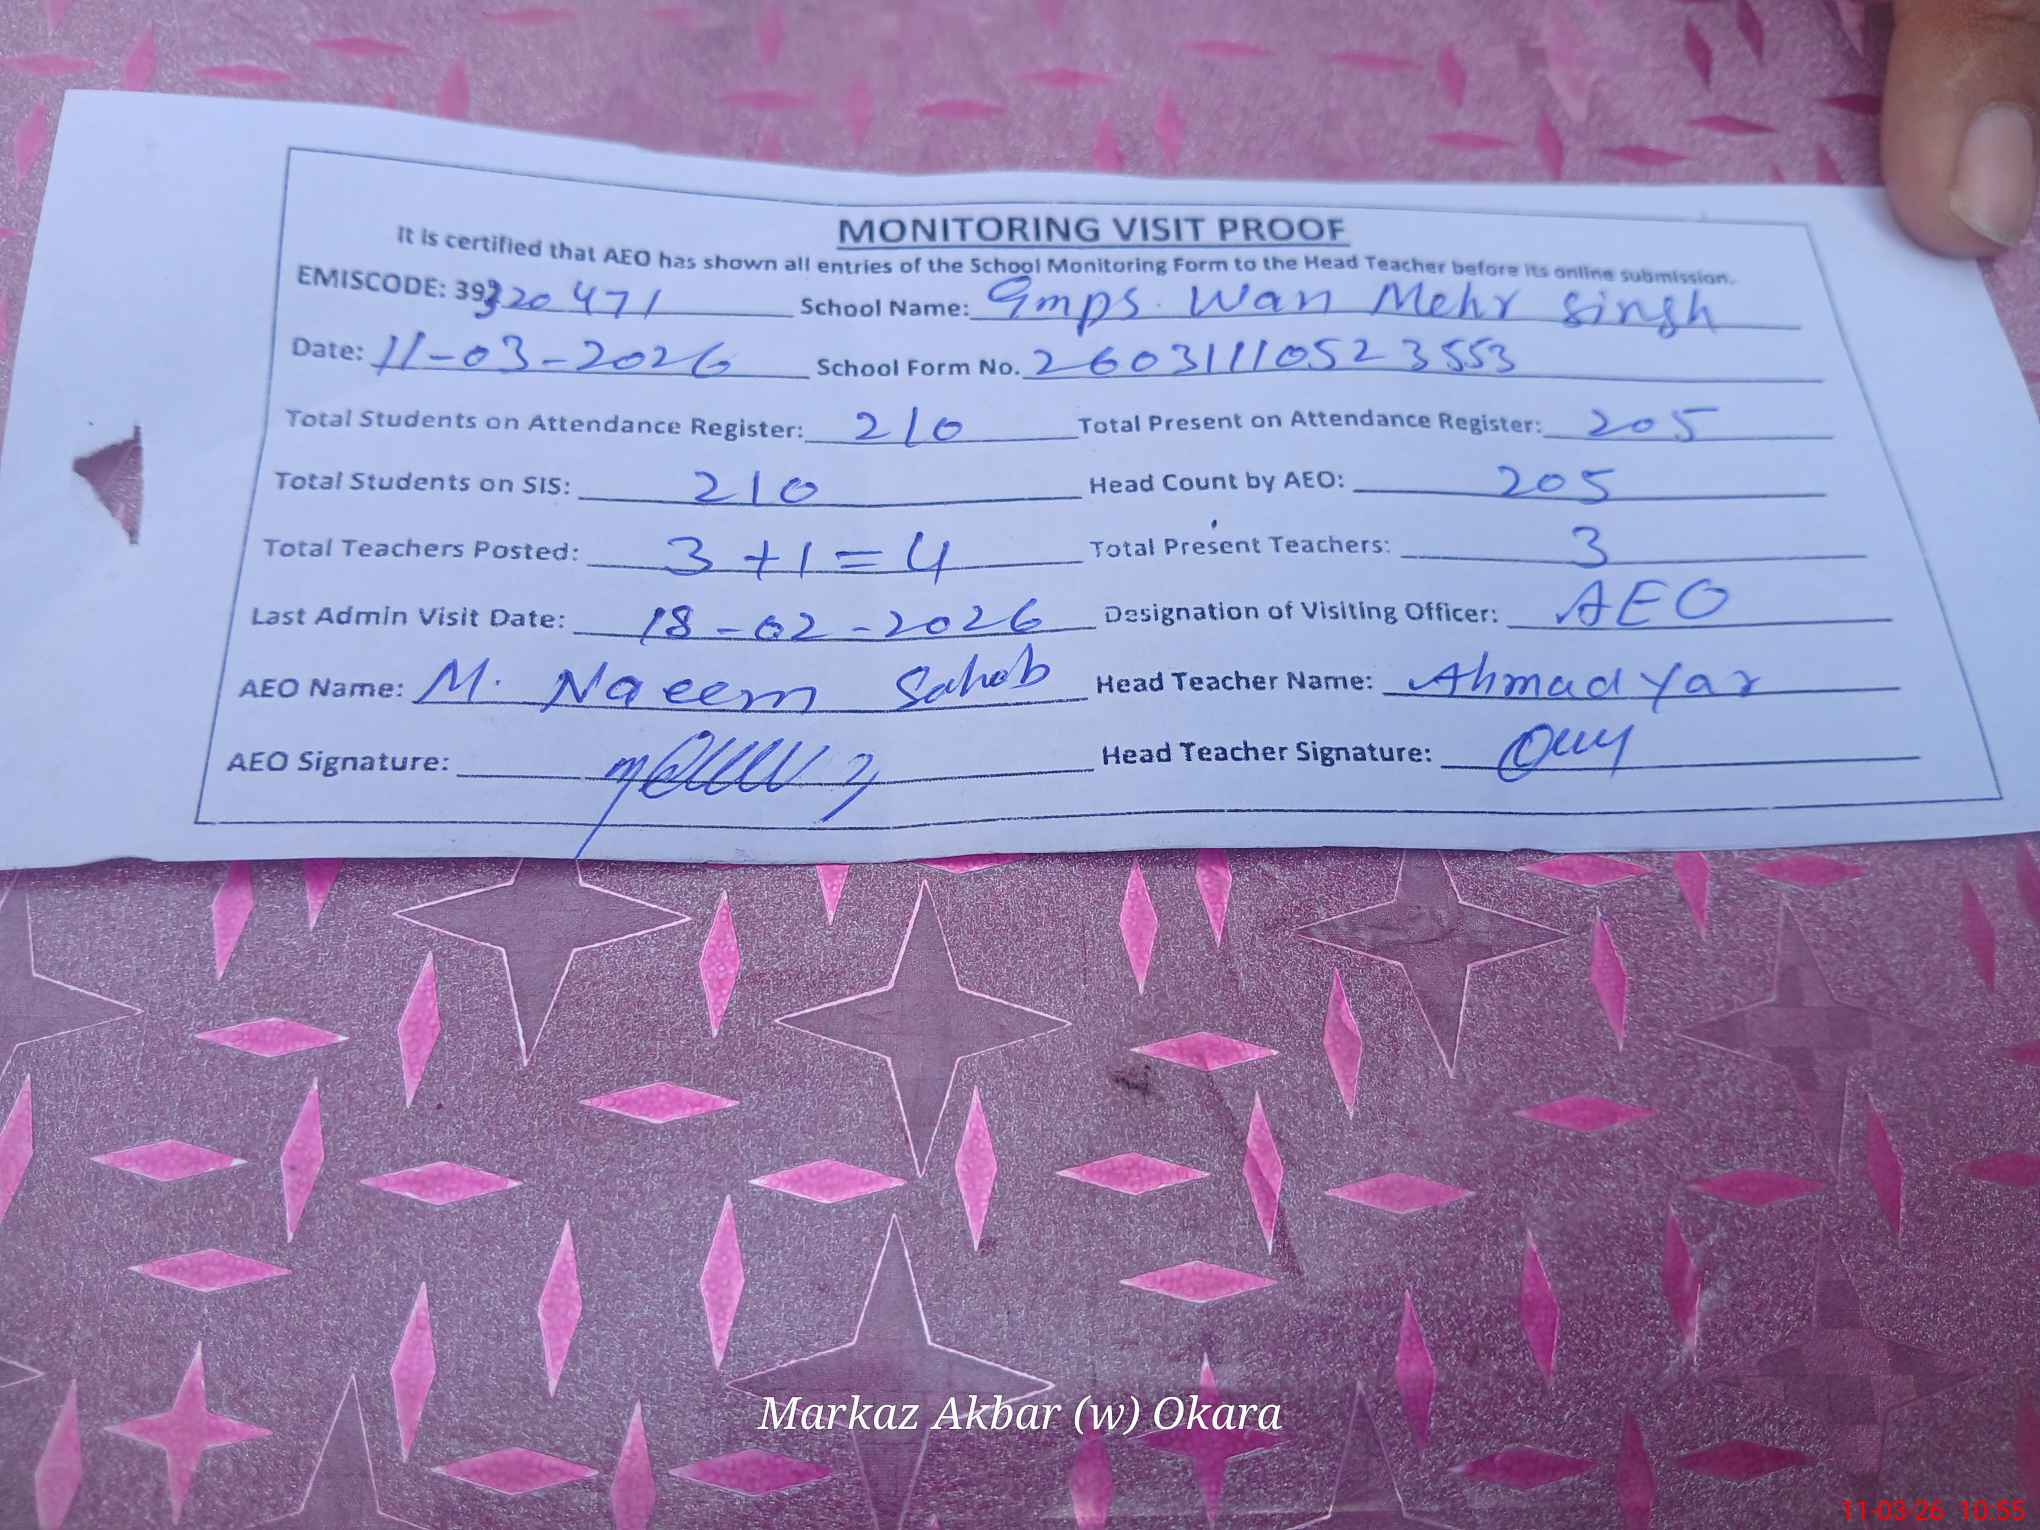 MONITORING VISIT PROOF
It is certified that AEO has shown all entries of the School Monitoring Form to the Head Teacher before its online submission.
EMISCODE: 39320471 School Name: Gmps. Wan Mehr Singh
Date: 11-03-2026 School Form No. 260311110523553
Total Students on Attendance Register: 210 Total Present on Attendance Register: 205
Total Students on SIS: 210 Head Count by AEO: 205
Total Teachers Posted: 3+1=4 Total Present Teachers: 3
Last Admin Visit Date: 18-02-2026 Designation of Visiting Officer: AEO
AEO Name: M. Naeem Sahab Head Teacher Name: Ahmad Yar
AEO Signature: Head Teacher Signature:
Markaz Akbar (w) Okara
11-03-26 10:55